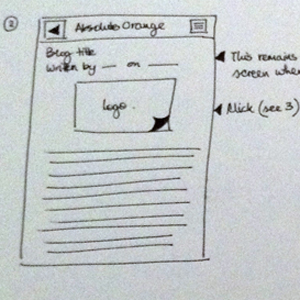 2
Absolute Orange
Blog title
Written by — on —
logo.
This remains
screen when
(see 3)